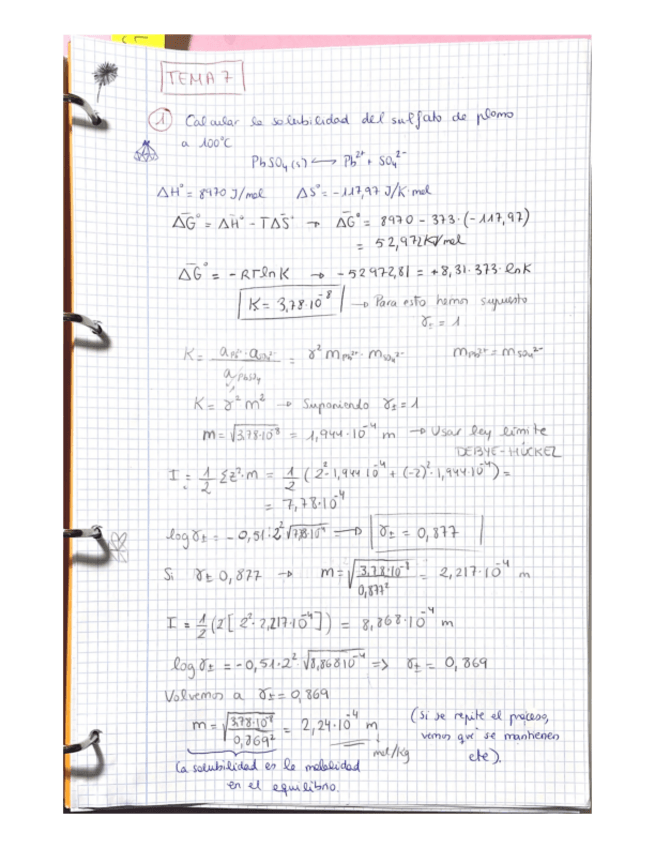 TEMA 7
① Calcular la solubilidad del sulfato de plomo
a 100°C
PbSO₄(s) ⟷ Pb²⁺ + SO₄²⁻
ΔH° = 8970 J/mol ΔS° = -117,97 J/K·mol
ΔG° = ΔH° - TΔS° → ΔG° = 8970 - 373·(-117,97)
= 52,972 kJ/mol
ΔG° = -RTlnK → -52972,81 = +8,31·373·lnK
K = 3,78·10⁻⁸ → Para esto hemos supuesto
γ± = 1
K = a Pb²⁺ · a SO₄²⁻ / a PbSO₄ = γ² m Pb²⁺ · m SO₄²⁻ m Pb²⁺ = m SO₄²⁻
K = γ² m² → Suponiendo γ± = 1
m = √3,78·10⁻⁸ = 1,944·10⁻⁴ m → Usar ley límite
DEBYE-HÜCKEL
I = 1/2 Σz²·m = 1/2 (2²·1,944·10⁻⁴ + (-2)²·1,944·10⁻⁴) =
= 7,78·10⁻⁴
log γ± = -0,51·2² √7,78·10⁻⁴ → γ± = 0,877
Si γ± 0,877 → m = √3,78·10⁻⁸/0,877² = 2,217·10⁻⁴ m
I = 1/2 (2[2²·2,217·10⁻⁴]) = 8,868·10⁻⁴ m
log γ± = -0,51·2² √8,868·10⁻⁴ => γ± = 0,869
Volvemos a γ± = 0,869
m = √3,78·10⁻⁸/0,869² = 2,24·10⁻⁴ m (Si se repite el proceso,
vemos que se mantienen
mol/Kg cte).
La solubilidad es la molalidad
en el equilibrio.